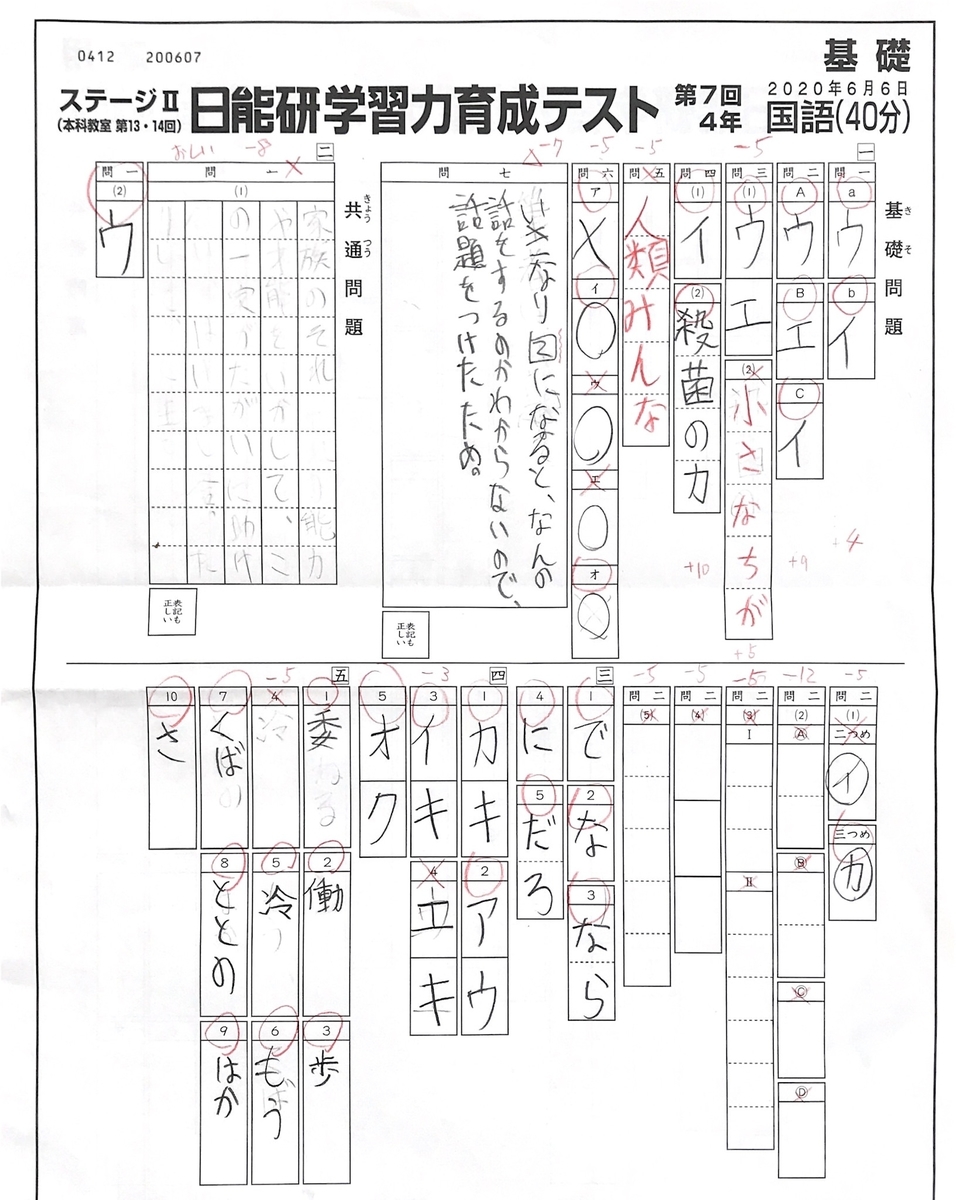 0412 200607
基礎
ステージⅡ
(本科教室 第13・14回)
日能研学習力育成テスト
第7回
4年
2020年6月6日
国語(40分)
一
基礎問題
きそ
問一
a
ウ
b
イ
+4
問二
A
ウ
B
エ
C
イ
+9
-5
問三
(1)
ウ
エ
(2)
小さなちが
+5
問四
(1)
イ
(2)
殺菌の力
+10
-5
問五
人類みんな
-5
問六
ア
×
イ
○
ウ
○
エ
○
オ
-7
問七
いきなり
になると、なんの
話をするのかわからないので、
話題をつけたため。
表記も正しい
共通問題
きょうつう
二
おしい -8
問一
(1)
家族のそれ
能力
や才能をいかして、こ
の一家
たがいに助け
表記も正しい
問一
(2)
ウ
-5
問二
(1)
二つめ
イ
三つめ
カ
-12
問二
(2)
A
B
C
D
-5
問二
(3)
Ⅰ
Ⅱ
-5
問二
(4)
-5
問二
(5)
三
1
で
2
な
3
なら
4
に
5
だろ
四
1
カ
キ
2
ア
ウ
-3
3
イ
キ
4
エ
キ
5
オ
ク
五
1
委ねる
2
働
3
歩
-5
4
冷
5
冷
6
もう
7
くば
8
ととの
9
はか
10
さ